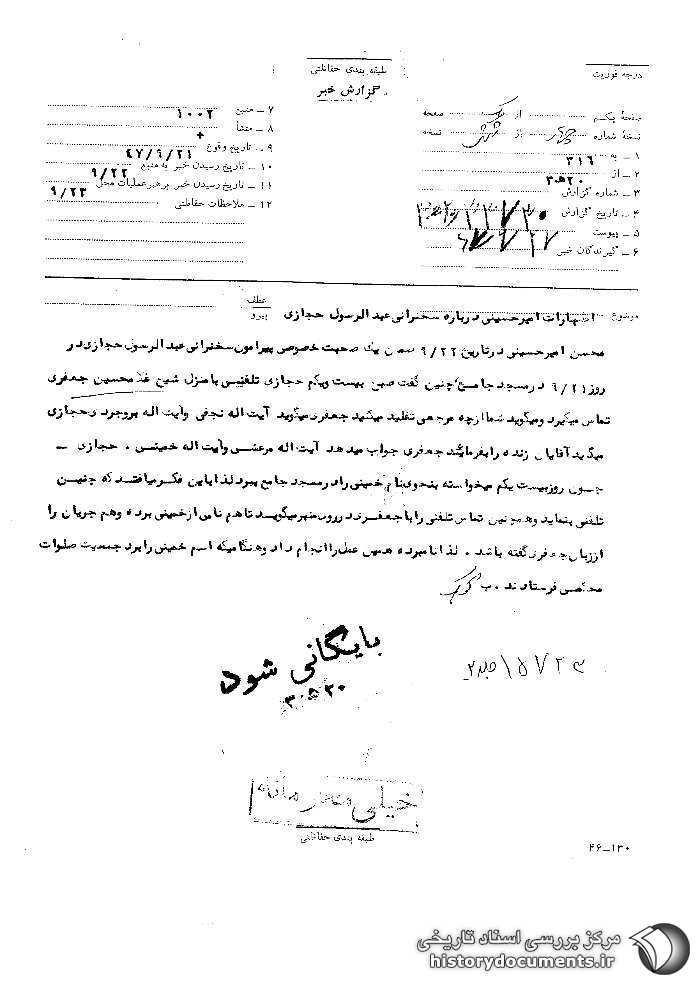 طبقه بندی حفاظتی
گزارش خبر
درجه فوریت
صفحهٔ یکم از یک صفحه
نسخهٔ شماره چهار از شش نسخه
۱ ـ به ۳۱۶
۲ ـ از ۲۰ه۳
۳ ـ شماره گزارش
۴ ـ تاریخ گزارش
۵ ـ پیوست
۶ ـ گیرندگان خبر
۷ ـ منبع ۱۰۰۲
۸ ـ منشأ +
۹ ـ تاریخ وقوع ۴۷/۹/۲۱
۱۰ ـ تاریخ رسیدن خبر به منبع ۹/۲۲
۱۱ ـ تاریخ رسیدن خبر برهبر عملیات محل ۹/۲۳
۱۲ ـ ملاحظات حفاظتی
عطف
پیرو
موضوع اظهارات امیرحسینی درباره سخنرانی عبدالرسول حجازی
محسن امیرحسینی در تاریخ ۹/۲۲ ضمن یک صحبت خصوصی پیرامون سخنرانی عبدالرسول حجازی در
روز ۹/۲۱ در مسجد جامع چنین گفت صبح بیست ویکم حجازی تلفنی با منزل شیخ غلامحسین جعفری
تماس میگیرد ومیگوید شما از چه مرجعی تقلید میکنید جعفری میگوید آیت اله نجفی وآیت اله بروجردی وحجازی
میگوید آقایان زنده را بفرمائید جعفری جواب میدهد آیت اله مرعشی وآیت اله خمینی . حجازی ـ
چون روز بیست یکم میخواسته بنحوی نام خمینی را در مسجد جامع ببرد لذا باین فکر میافتد که چنین
تلفنی بنماید وهمچنین تماس تلفنی را با جعفری در روی منبر میگوید تا هم نامی از خمینی برده وهم جریان را
از زبان جعفری گفته باشد . لذا نامبرده همین عمل را انجام داد وهنگامیکه اسم خمینی را برد جمعیت صلوات
مختصی فرستادند . ب
بایگانی شود
۳۰۵۲۰
خیلی محرمانه
طبقه بندی حفاظتی
۴۶-۱۳۰
مرکز بررسی اسناد تاریخی
historydocuments.ir